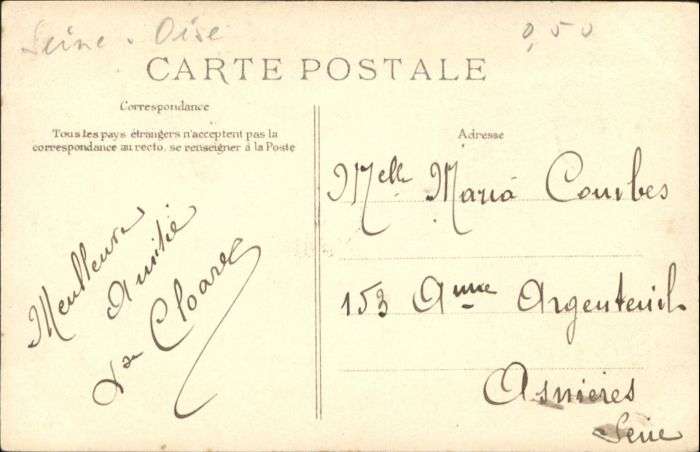 Seine - Oise
0,50
CARTE POSTALE
Correspondance
Tous les pays étrangers n'acceptent pas la
correspondance au recto, se renseigner à la Poste
Adresse
Meilleure
Amitié
Cloarec
Melle Maria Courbes
153 Anue Argenteuil
Asnieres
Seine